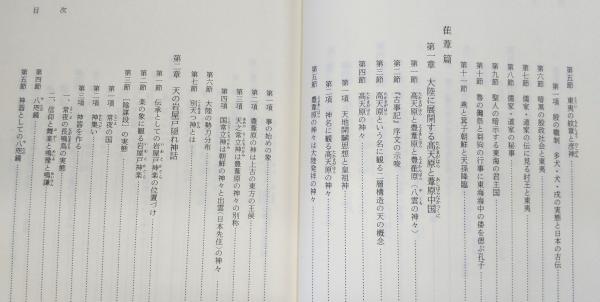 第五節 東夷の欽韋と彦神
第一項 殷の職制 多犬・犬・戌の実態と日本の古伝
第六節 暗黒の殷政社会と東夷
第七節 儒家・道家の伝に見る紂王と東夷
第八節 儒家・道家の秘事
第九節 聖人の暗示する東海の君主国
第十節 魯の襧祭と裂狗の行事に東海海中の倭を偲ぶ孔子
第十一節 燕と箕子朝鮮と天孫降臨
萑葦篇
第一章 大陸に展開する高天原と葦原中国
第一節 高天原と豊葦原と豊萑原(八雲の神々)
第二節 『古事記』序文の示唆
第三節 高天原という名に観る二層構造の天の概念
第四節 高天原の神々
第一項 天地開闢思想と皇祖神
第二項 神名に観る高天原の神々
第五節 豊葦原の神々は大陸発祥の神々
目次
第一項 事の始めの象
第二項 豊葦原の神は上古の東方の王侯
第三項 天之常立神は豊葦原の神々の別称
第四項 国常立神は朝鮮の神々と出雲(日本先住)の神々
第六節 大陸の勢力分布
第七節 別天つ神とは
第二章 天の岩屋戸隠れ神話
第一節 伝承としての岩屋戸神楽の位置づけ
第二節 楽の象に観る岩屋戸神楽
第三節 「陰謀段」の実態
第一項 常夜の国
第二項 神集い
第三項 神器を作る
一、常夜の長鳴鳥の実態
二、信仰と舞楽と鳴鏑と鳴鎌
第四節 八咫鏡
第五節 神器としての八咫鏡